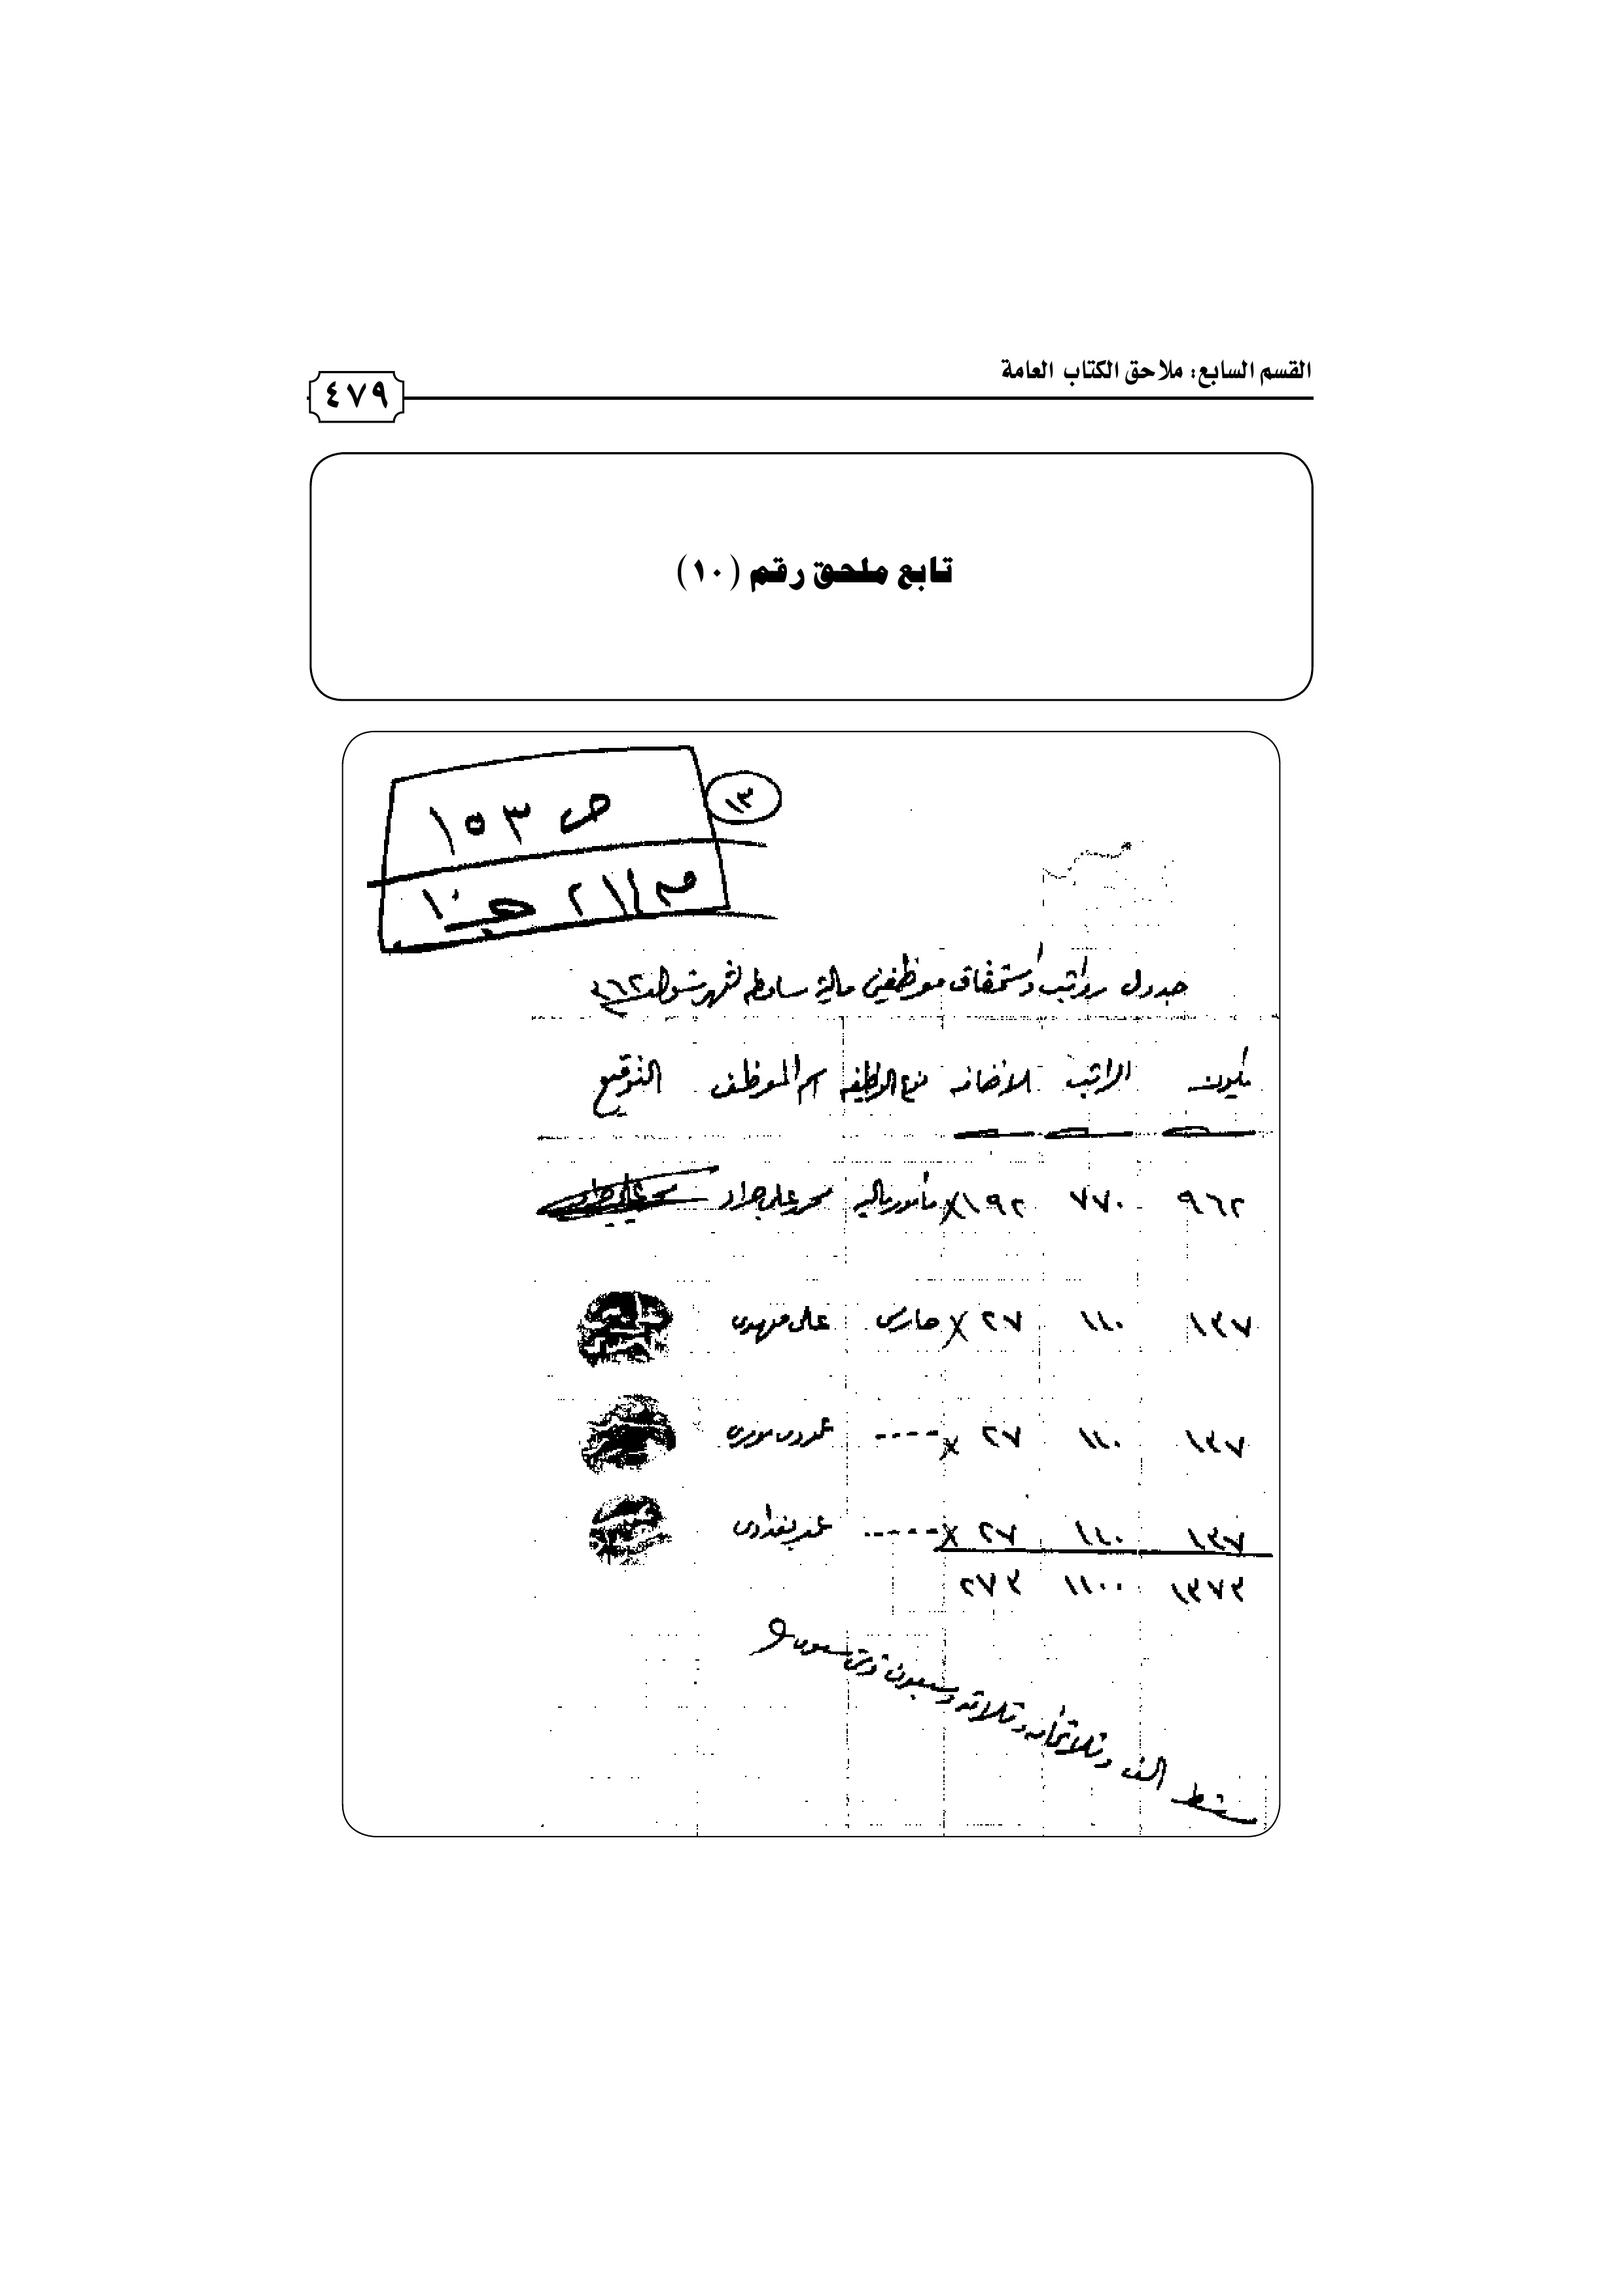 القسم السابع: ملاحق الكتاب العامة
٤٧٩
تابع ملحق رقم (١٠)
١٣
ص ١٥٣
م/٢١١ جـ ١٠
جدول رواتب واستحقاق موظفين مالية صامطه لشهر شوال ٣٦٢
يكون الراتب الاضافه نوع الوظيفه اسم الموظف التوقيع
٩٦٢ ٧٧٠ ١٩٢ × مأمور ماليه محمد علي جراد
١٣٧ ١١٠ ٢٧ × حارس علي مهدي
١٣٧ ١١٠ ٢٧ × ----
١٣٧ ١١٠ ٢٧ × ---- محمد بغدادي
١٣٧٣ ١١٠٠ ٢٧٣
فقط الف وثلاثمائه وثلاثه وسبعون قرش سعودي